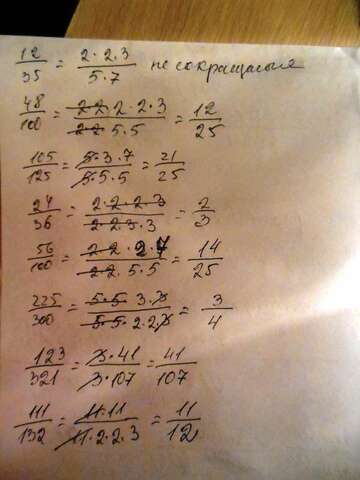 12/35 = 2·2·3/5·7 не сокращаемые
48/100 = 2·2·2·2·3/2·2·5·5 = 12/25
105/125 = 5·3·7/5·5·5 = 21/25
24/36 = 2·2·2·3/2·2·3·3 = 2/3
56/100 = 2·2·2·7/2·2·5·5 = 14/25
225/300 = 5·5·3·3/5·5·2·2·3 = 3/4
123/321 = 3·41/3·107 = 41/107
111/132 = 11·11/11·2·2·3 = 11/12